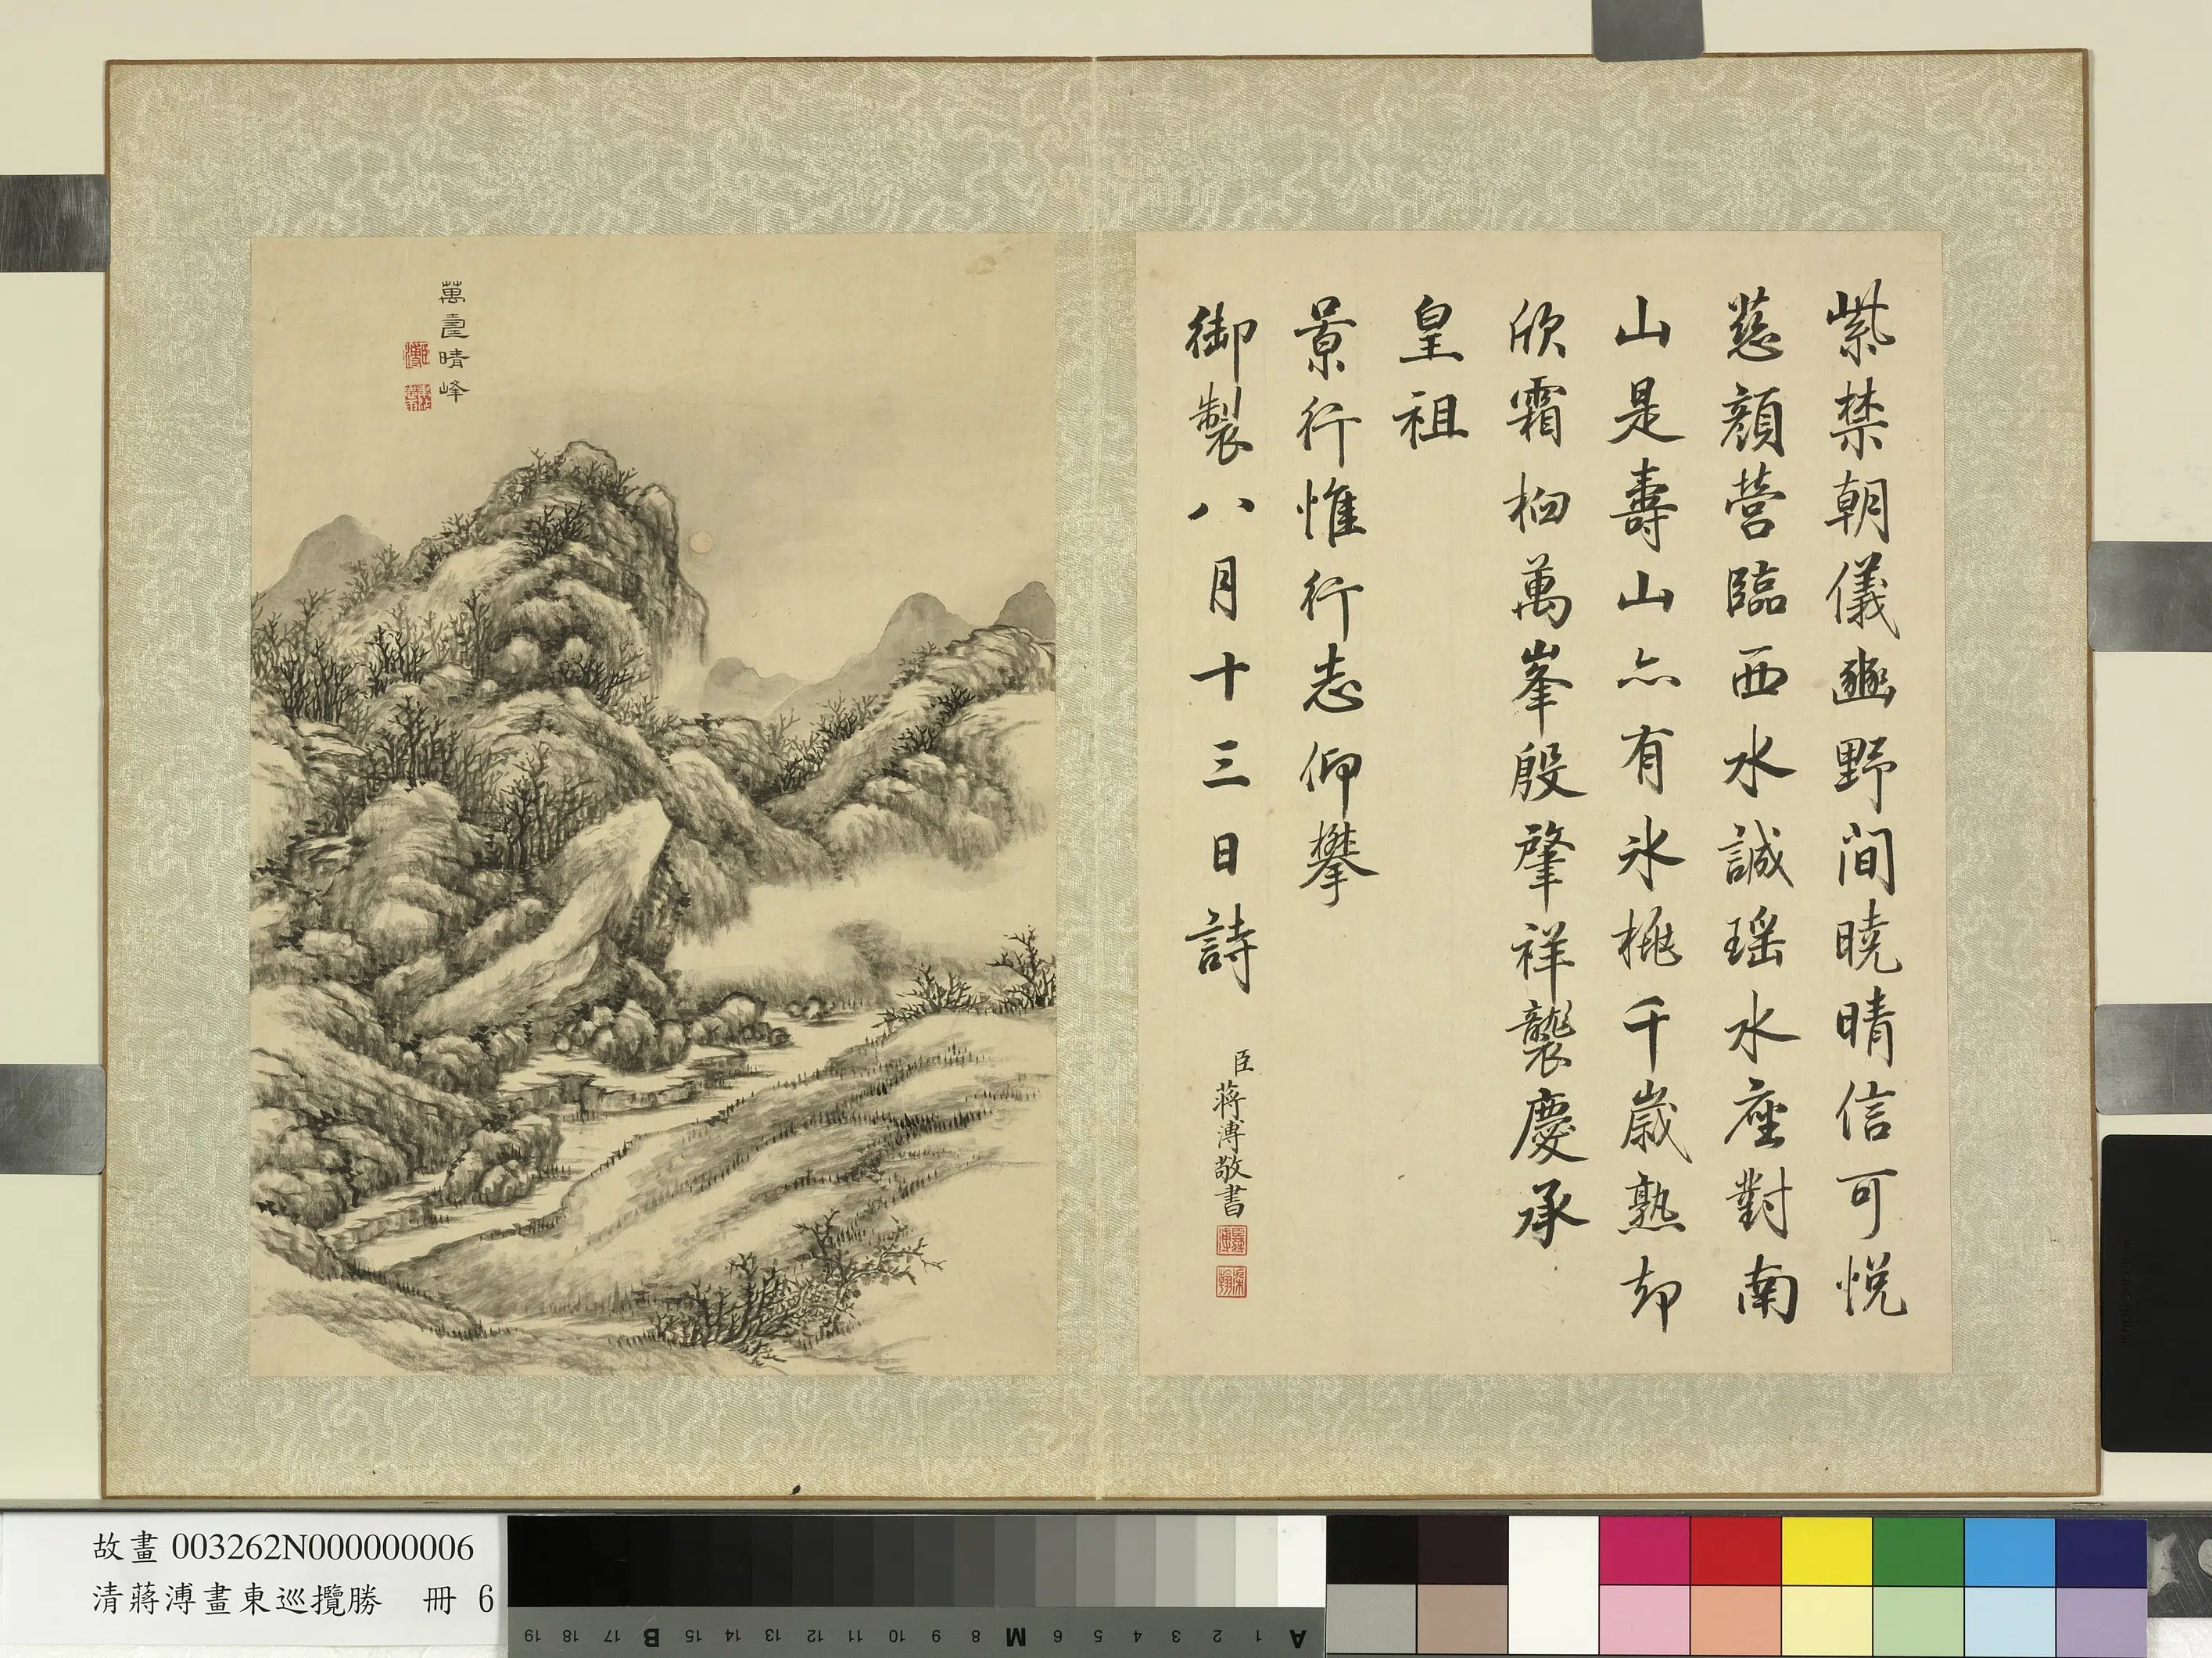 紫禁朝儀豳野間曉晴信可悅
慈顏營臨西水誠瑤水座對南
山是壽山亦有氷桃千歲熟却
欣霜桕萬峯殷肇祥襲慶承
皇祖
景行惟行志仰攀
御製八月十三日詩
臣蔣溥敬書
萬壽晴峰
故畫 003262N000000006
清蔣溥畫東巡攬勝 冊 6
A 1 2 3 4 5 6 M 8 9 10 11 12 13 14 15 B 17 18 19